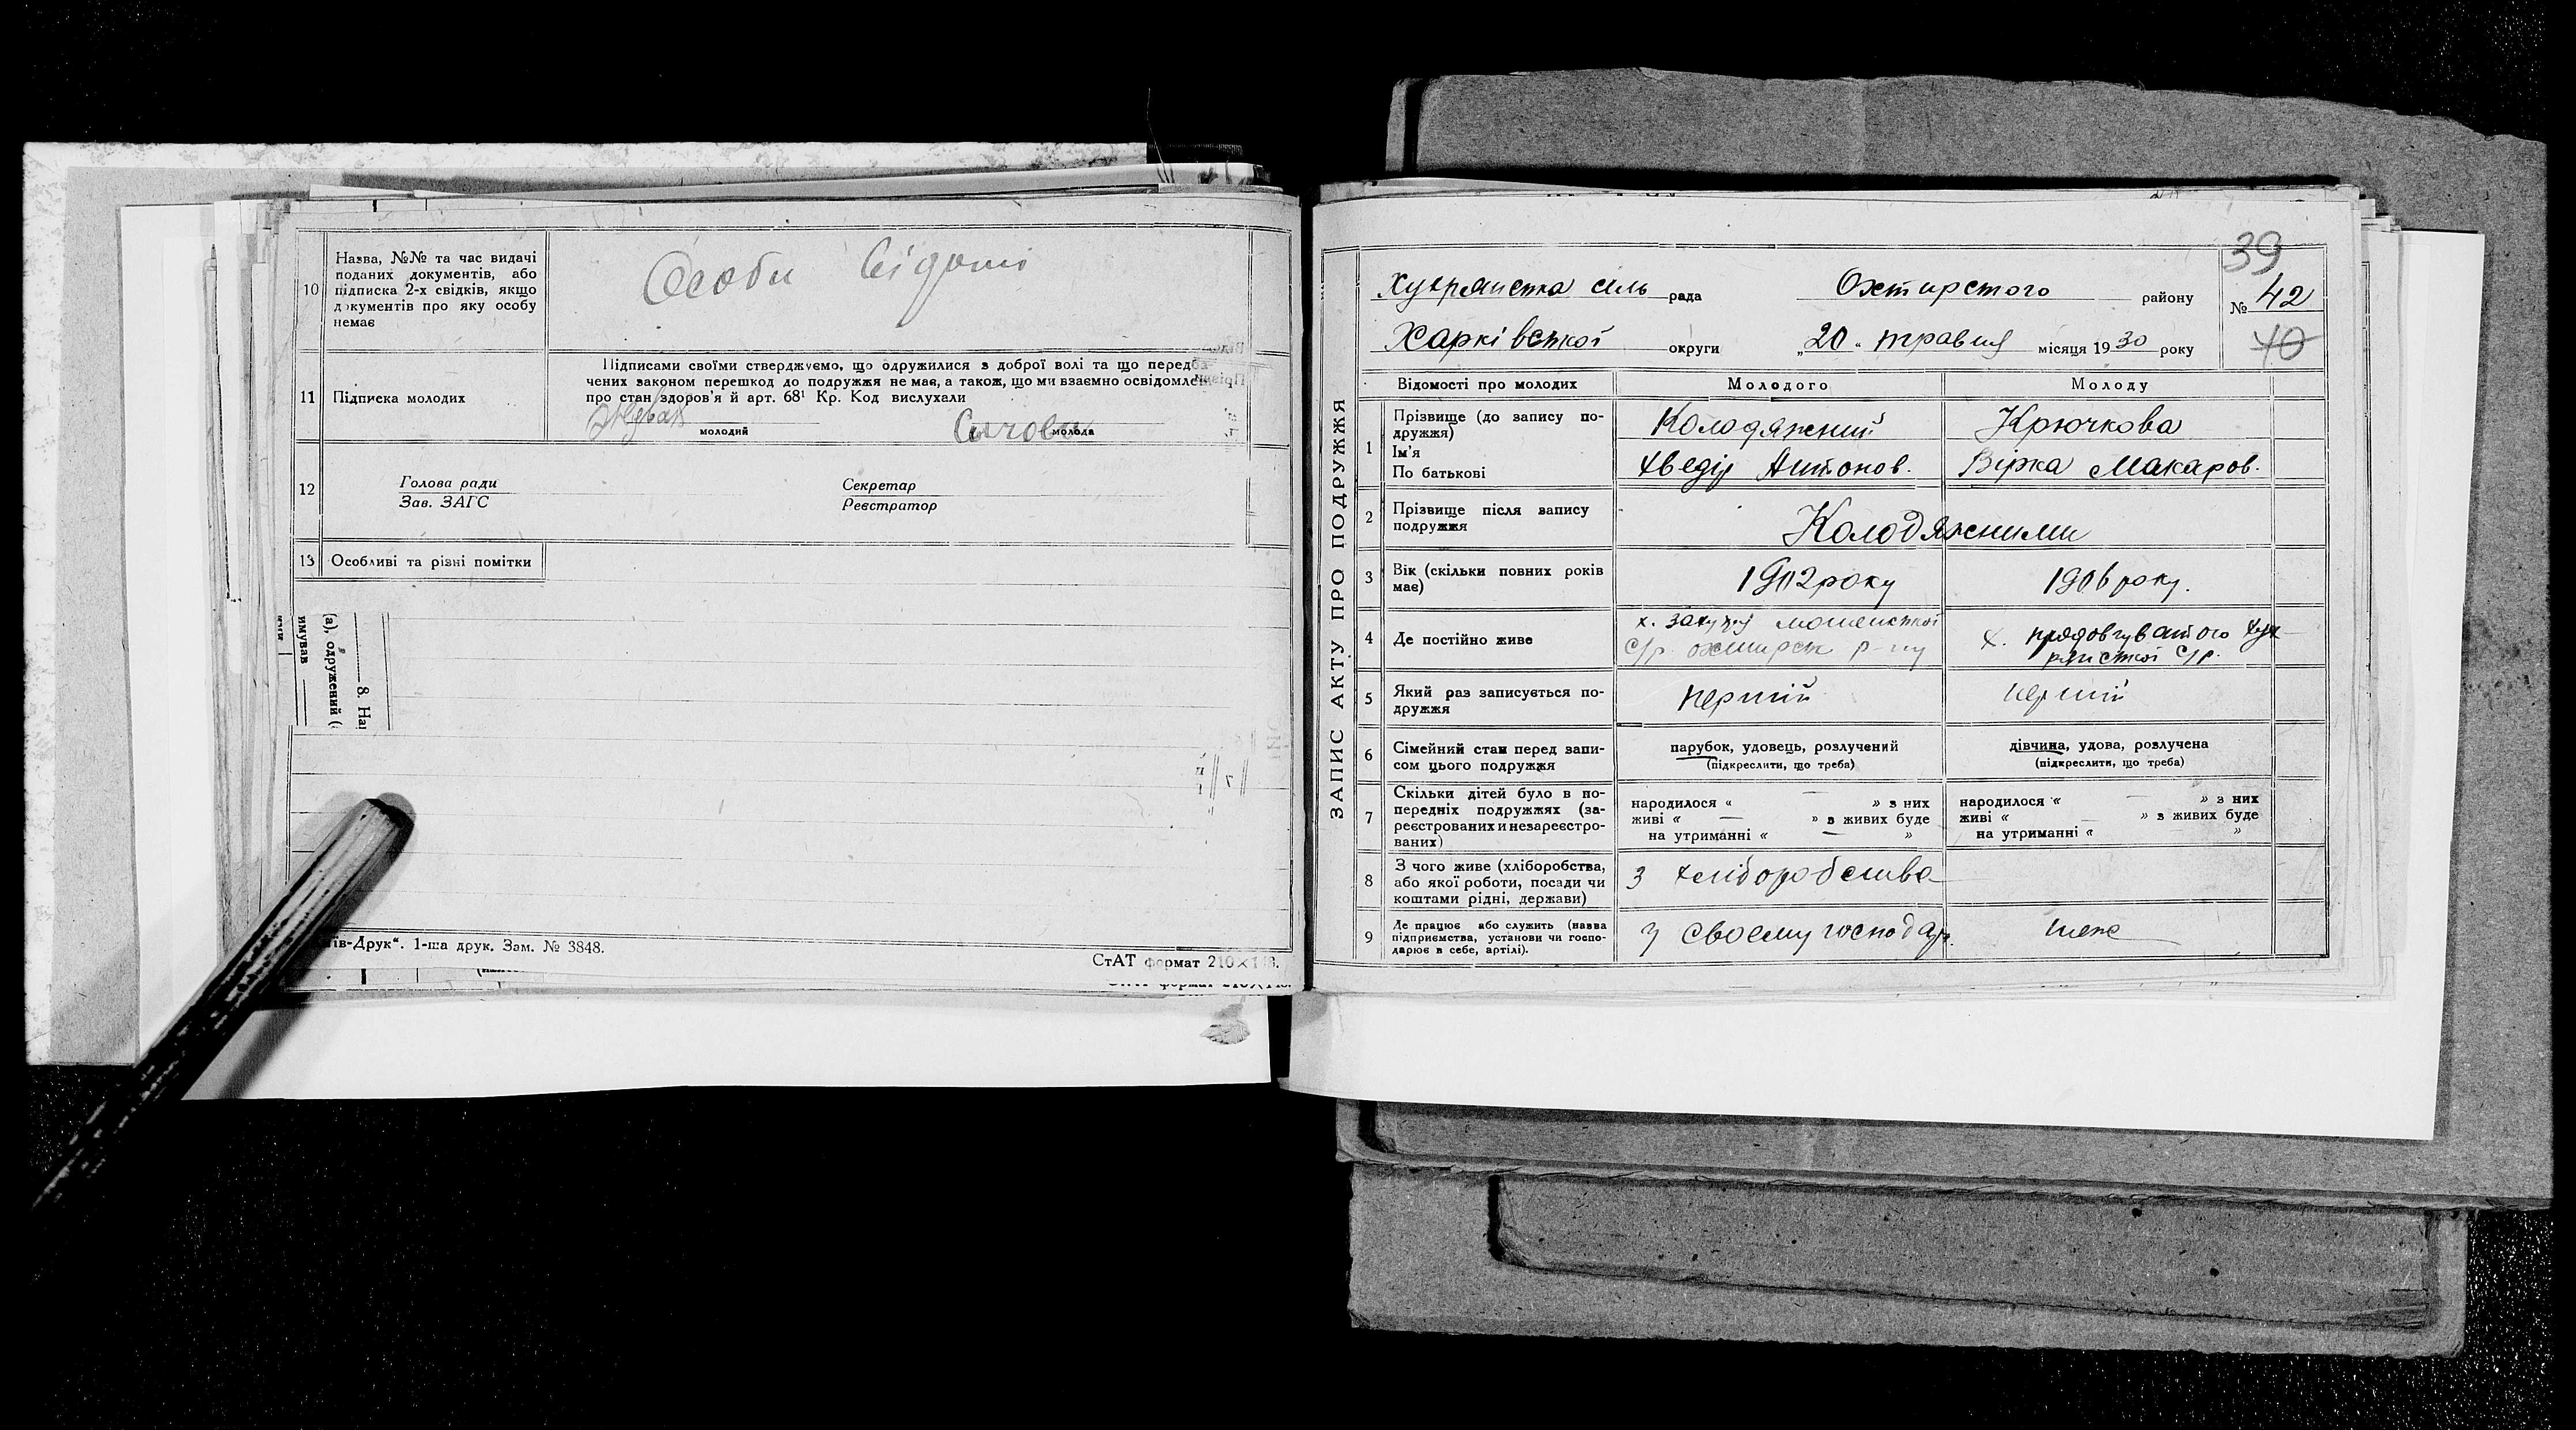 10
Назва, №№ та час видачі
поданих документів, або
підписка 2-х свідків, якщо
документів про яку особу
немає
Особи відомі
11
Підписка молодих
Підписами своїми стверджуємо, що одружилися з доброї волі та що передба-
чених законом перешкод до подружжя не має, а також, що ми взаємно освідомлені
про стан здоров'я й арт. 68¹ Кр. Код вислухали
молодий
молода
12
Голова ради
Зав. ЗАГС
Секретар
Реєстратор
13
Особливі та різні помітки
имував
(а), одружений (
8. На
їв-Друк“. 1-ша друк. Зам. № 3848.
СтАТ формат 210×148.
39
Хухрянска сіль рада Охтирстого району
№ 42
40
Харківсткої округи „20„ травня місяця 1930 року
ЗАПИС АКТУ ПРО ПОДРУЖЖЯ
Відомості про молодих
Молодого
Молоду
1
Прізвище (до запису по-
дружжя)
Ім'я
По батькові
Колодяжний
Хведір Антонов.
Крючкова
Вірка Макаров.
2
Прізвище після запису
подружжя
Колодяжними
3
Вік (скільки повних років
має)
1902 року
1906 року.
4
Де постійно живе
х.
с/р. охтирск р-ну
х.
с/р.
5
Який раз записується по-
дружжя
перший
перший
6
Сімейний стан перед запи-
сом цього подружжя
парубок, удовець, розлучений
(підкреслити, що треба)
дівчина, удова, розлучена
(підкреслити, що треба)
7
Скільки дітей було в по-
передніх подружжях (за-
реєстрованих и незареєстро-
ваних)
народилося « — » з них
живі « — » з живих буде
на утриманні « — »
народилося « — » з них
живі « — » з живих буде
на утриманні « »
8
З чого живе (хліборобства,
або якої роботи, посади чи
коштами рідні, держави)
З хліборобства
9
Де працює або служить (назва
підприємства, установи чи госпо-
дарює в себе, артілі).
У своєму господар.
теж